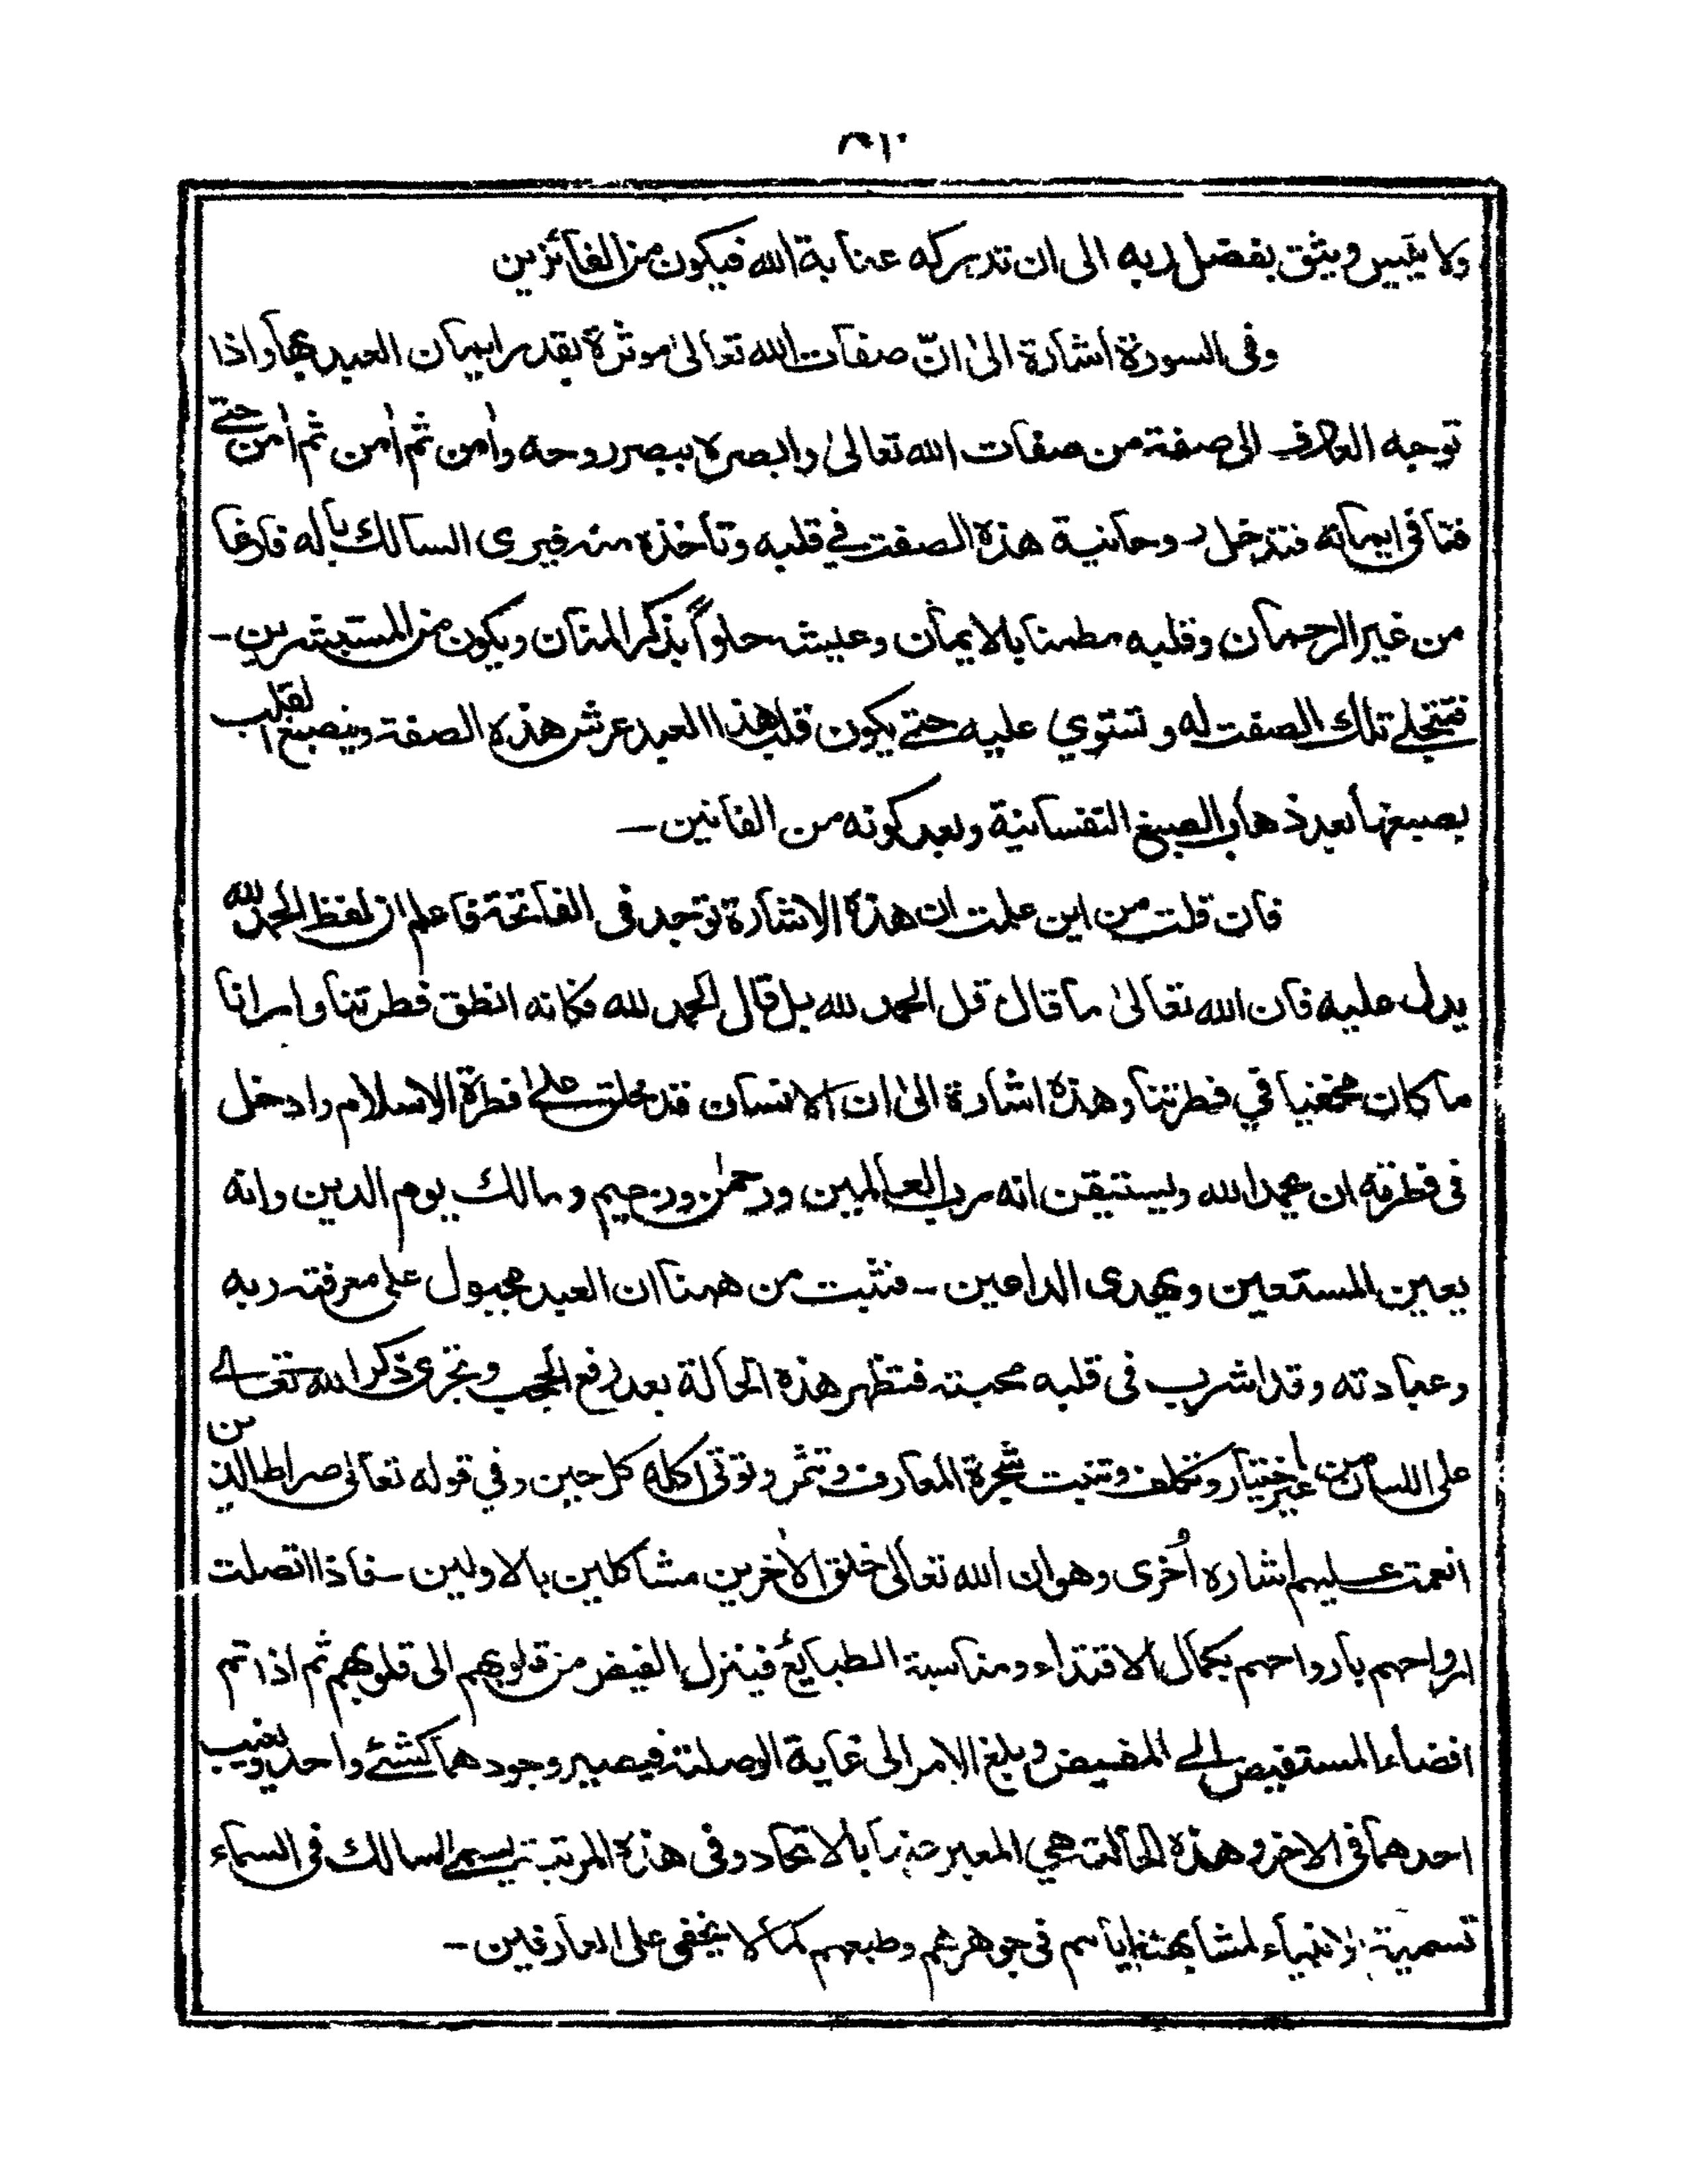 ولا ييئس ويثق بفضل ربه الى ان تدركه عناية الله فيكون من الفائزين
وفى السورة اشارة الىٰ انّ صفات الله تعالىٰ موثرة بقدر ايمان العبد بها واذا
توجه العارف الى صفة من صفات الله تعالىٰ وابصره ببصر روحه واٰمن ثم اٰمن ثم اٰمن حتّے
فنا فى ايمانه فتدخل روحانية هذه الصفت فے قلبه وتأخذه منه فيرى السالك باله فارغا
من غير الرحمان وقلبه مطمئنا بالايمان وعيشه حلواً بذكر المنان ويكون من المستبشرين ـ
فتتجلے تلك الصفت له وتستوي عليه حتے يكون قلب هذا العبد عرش هذه الصفة وينصبغ القلب
بصبغها بعد ذهاب الصبغ النفسانية وبعد كونه من الفانين ـ
فان قلت من اين علمت ان هذه الاشارة توجد فى الفاتحة فاعلم ان لفظ الحمد لله
يدل عليه فان الله تعالىٰ ما قال قل الحمد لله بل قال الحمد لله فكانه انطق فطرتنا وارانا
ما كان مخفيا في فطرتنا وهذه اشارة الىٰ ان الانسان قد خلق علےٰ فطرة الاسلام وادخل
فى فطرته ان يحمد الله ويستيقن انه رب العالمين ورحمٰن ورحيم ومالك يوم الدين وانه
يعين المستعين ويهدى الداعين ـ فثبت من ههنا ان العبد مجبول على معرفته ربه
وعبادته وقد اشرب فى قلبه محبته فتظهر هذه الحالة بعد رفع الحجب وتجرى ذكر الله تعالے
على اللسان من غير اختيار وتكلف وتنبت شجرة المعارف وتثمر وتوتى اكله كل حين وفي قوله تعالىٰ صراط الذين
انعمت عليهم اشاره اُخرى وهو ان الله تعالىٰ خلق الاٰخرين مشاكلين بالاولين ـ فاذا اتصلت
ارواحهم بارواحهم بكمال الاقتداء ومناسبة الطبائع فينزل الفيض من قلوبهم الى قلوبهم ثم اذا تم
افضاء المستفيض الے المفيض وبلغ الامر الى غاية الوصلة فيصير وجودهما كشئے واحد ويغيب
احدهما فى الاخر وهذه الحالت هي المعبر عنها بالاتحاد وفى هذه المرتبة يسمے السالك فى السماء
تسمية الانبياء لمشابهته اياهم فى جوهرهم وطبعهم كما لا يخفى على العارفين ـ